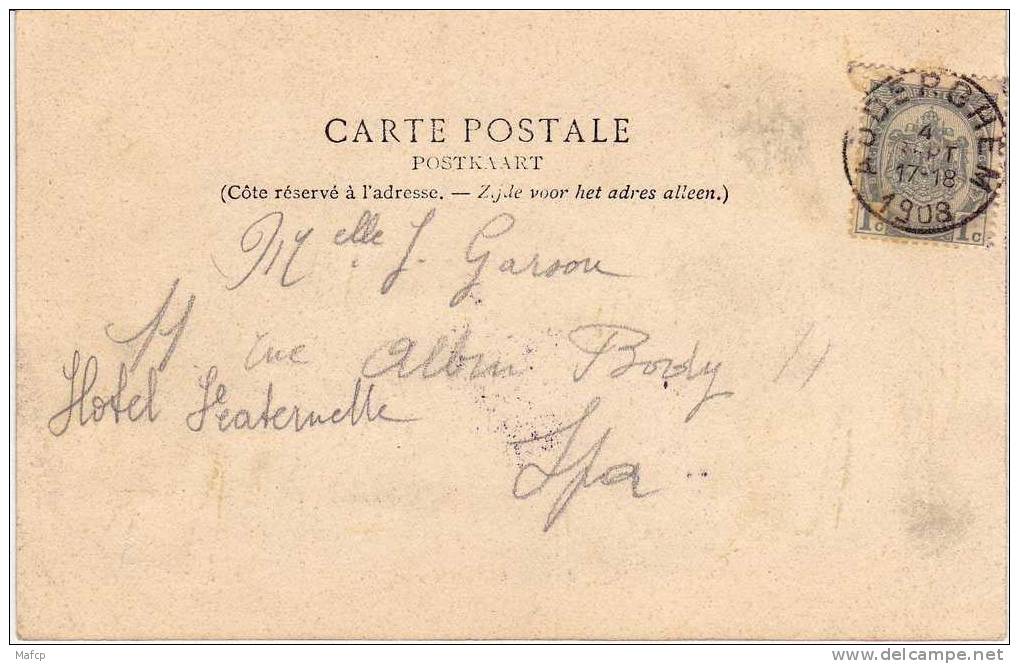 CARTE POSTALE
POSTKAART
(Côte réservé à l'adresse. — Zijde voor het adres alleen.)
AUDERGHEM
4
SEPT
17-18
1908
1c 1c
Melle J. Garson
11 rue Albin Body 11
Hotel Fraternelle
Spa
Mafcp
delcampe.net